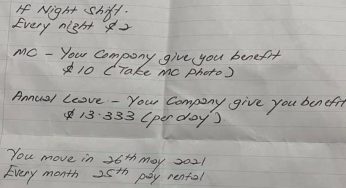 If Night Shift.
Every night $2
MC - Your Company give you benefit
$10 (Take MC photo)
Annual Leave - Your Company give you benefit
$13.333 (per day)
You move in 26th may 2021
Every month 25th pay rental